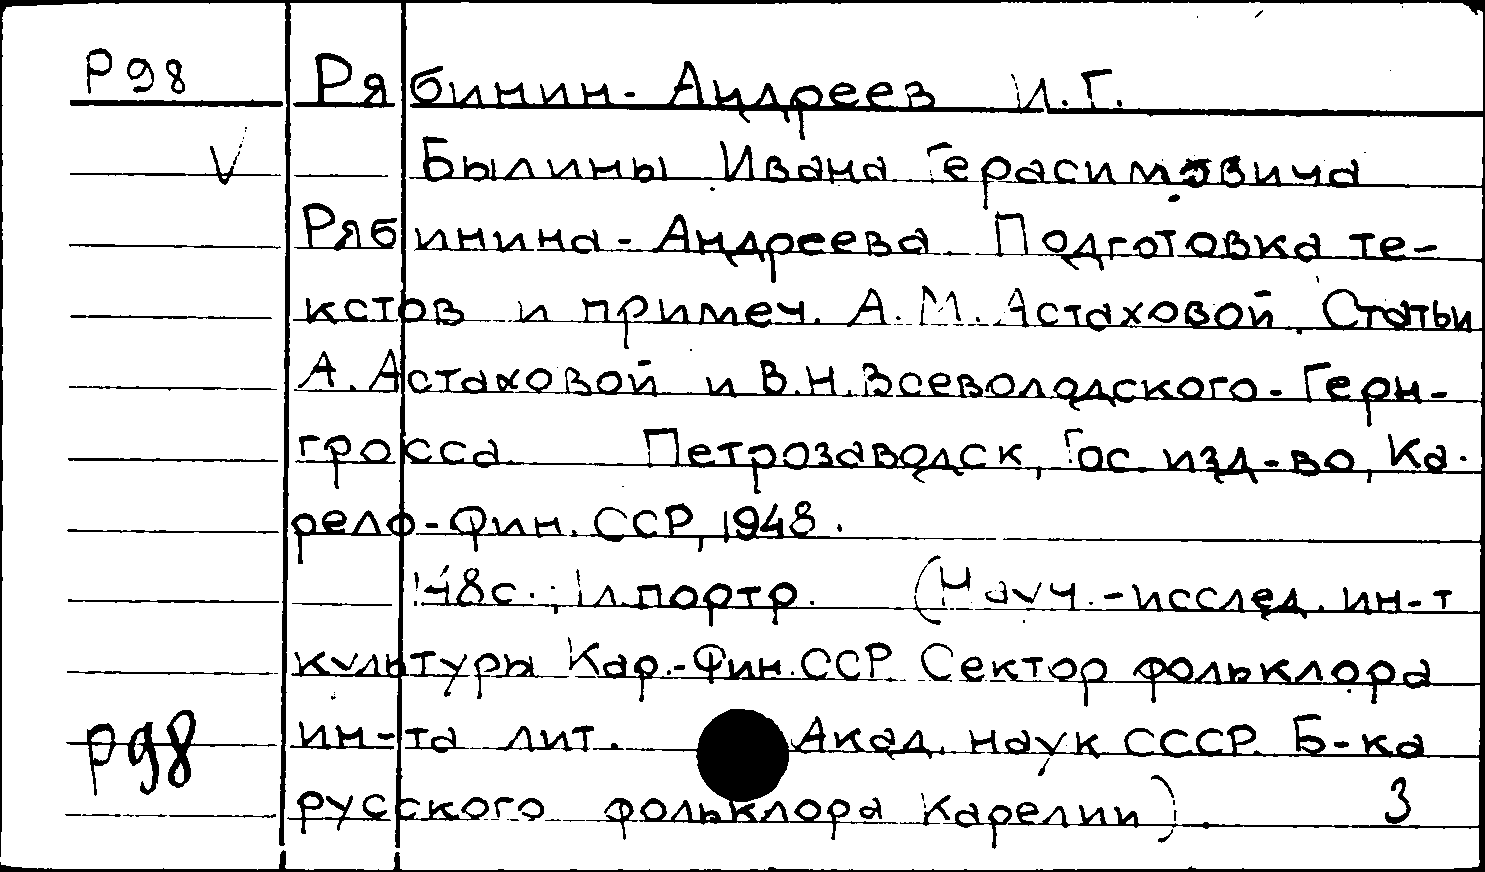 Р98 Рябинин-Андреев И.Г.
V Былины Ивана Герасимовича
Рябинина-Андреева. Подготовка те-
кстов и примеч. А.М.Астаховой. Статьи
А.Астаховой и В.Н.Всеволодского-Герн-
гросса Петрозаводск, Гос. изд-во, Ка-
рело-Фин. ССР, 1948.
148с.; 1л.портр. (Науч.-исслед. ин-т
культуры Кар.-Фин.ССР. Сектор фольклора
Р98 ин-та лит. Акад. наук СССР. Б-ка
русского фольклора Карелии). 3